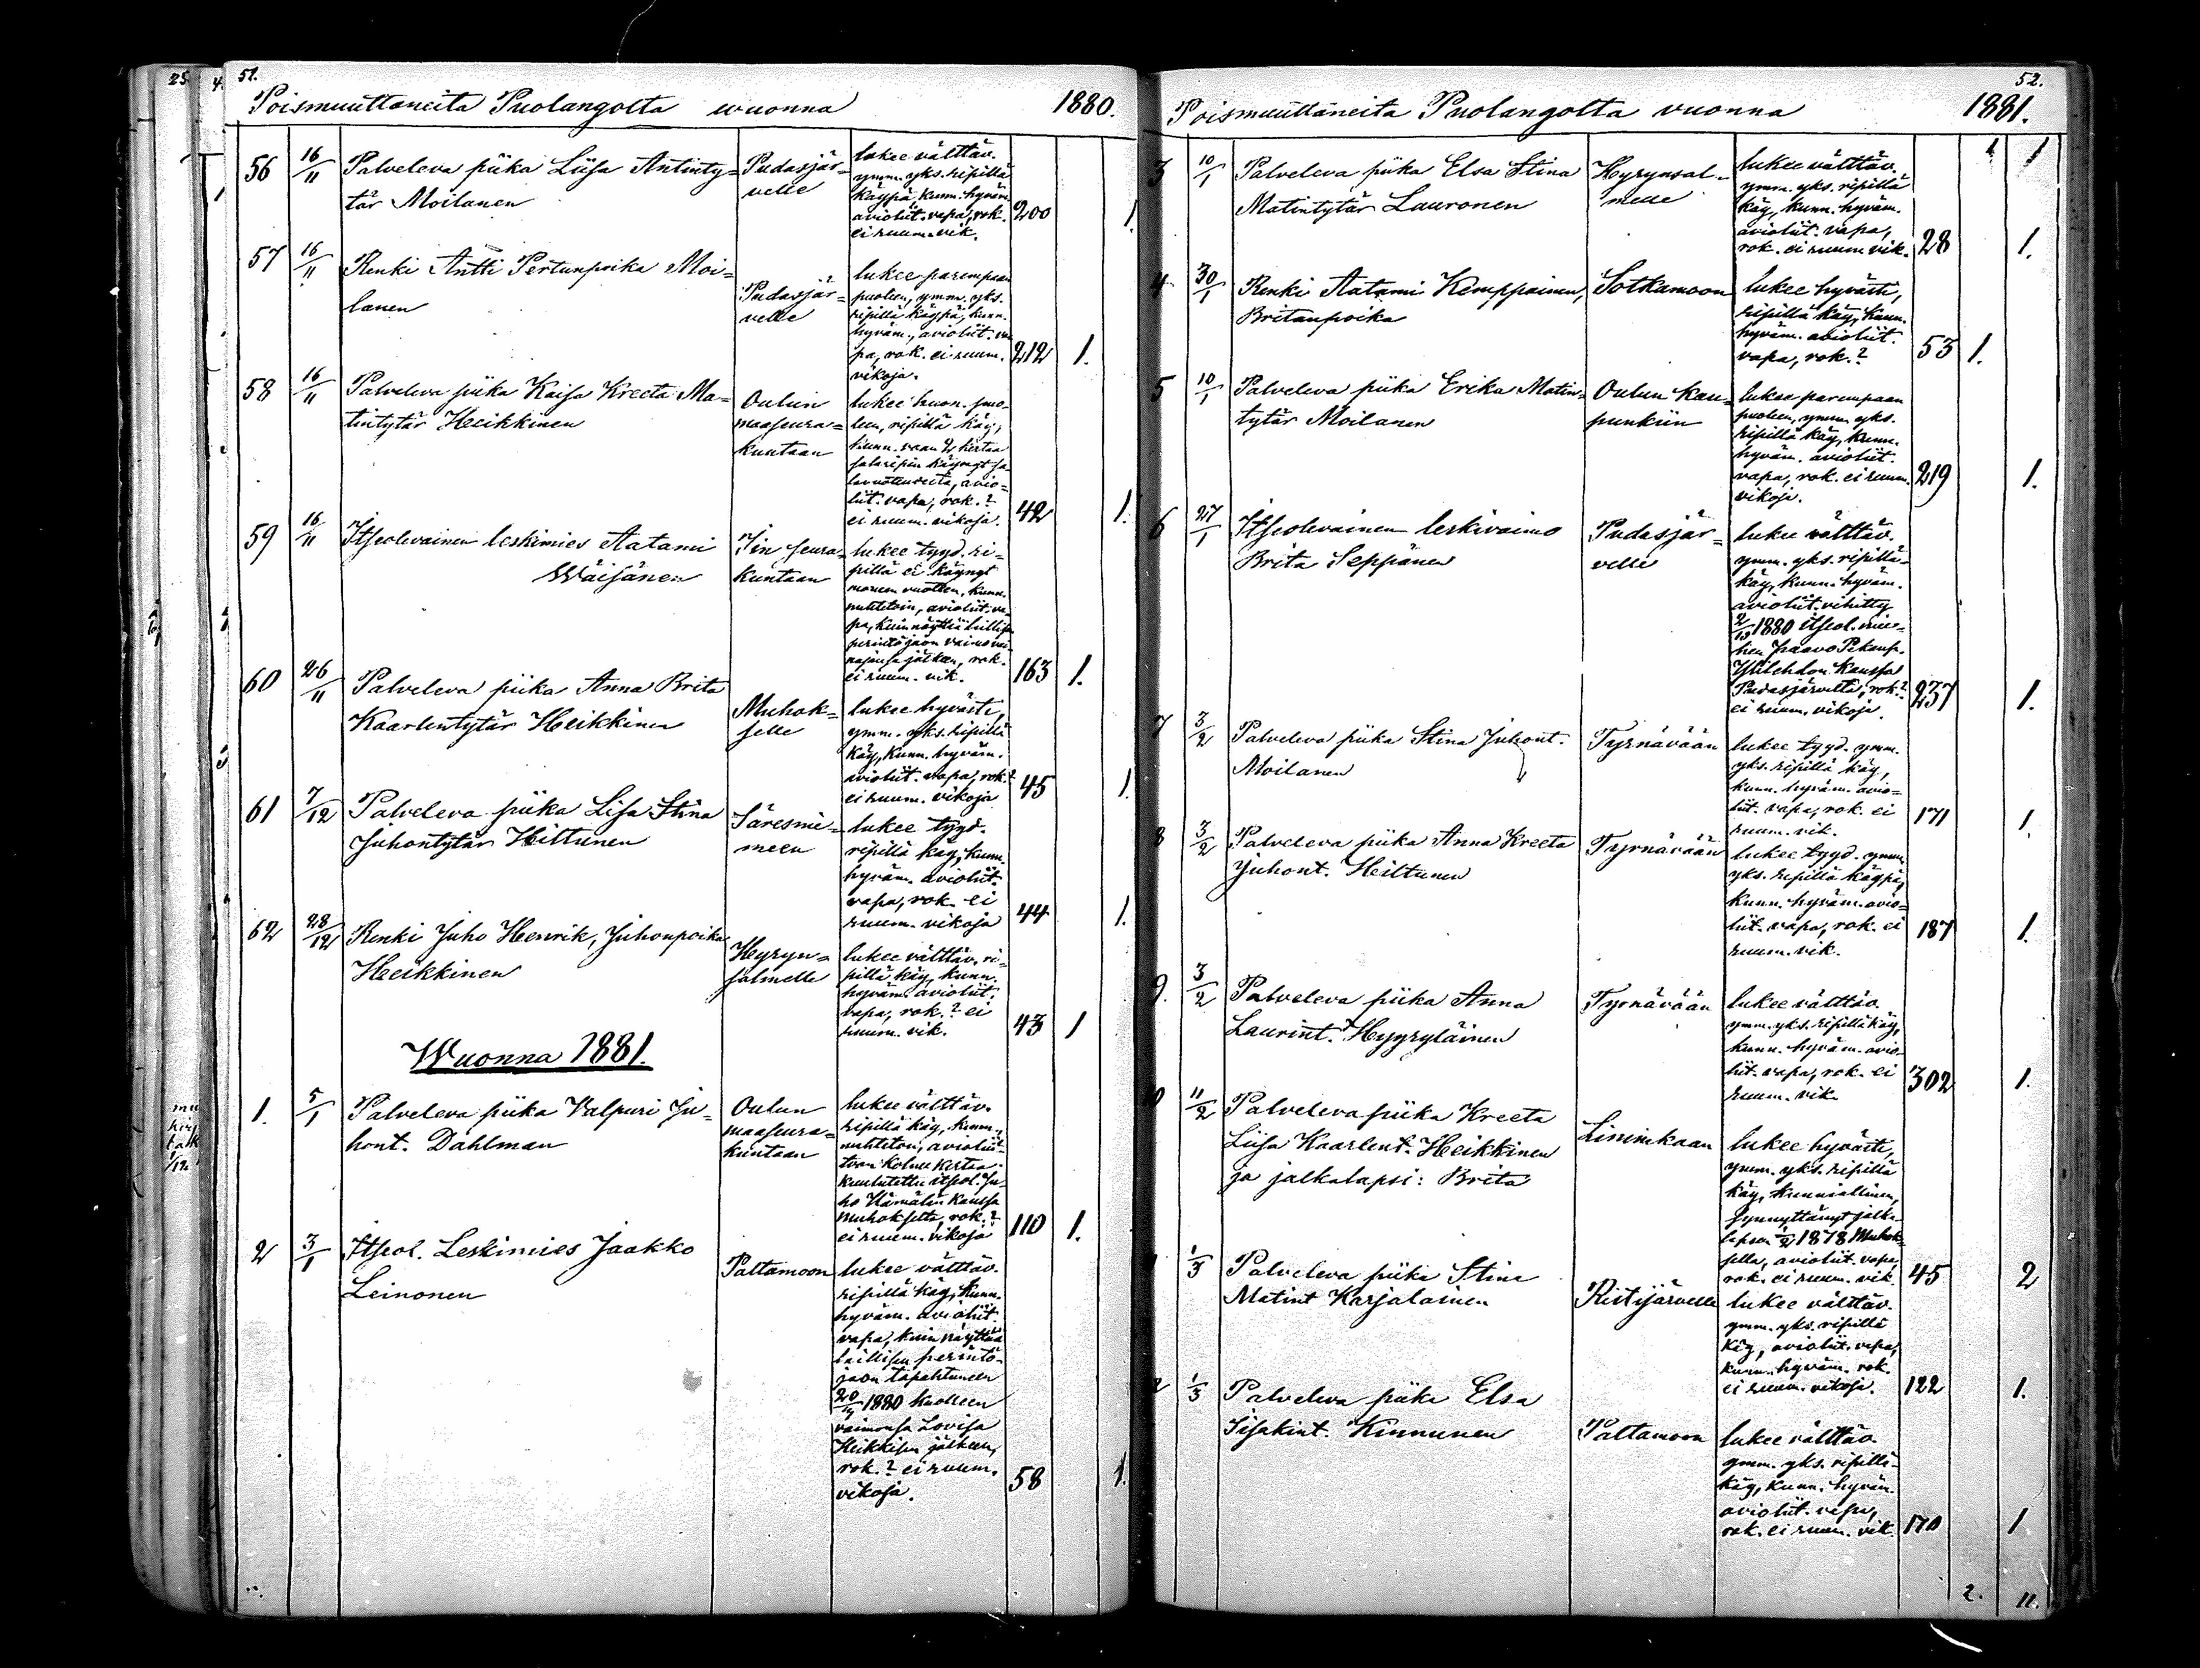 51.
Poismuuttaneita Puolangolta wuonna 1880.
56 16/11 Palveleva piika Liisa Antinty-
tär Moilanen
Pudasjär-
velle
lukee välttäv.
ymm. yks. ripillä
käypä, kunn. hyväm.
avioliit. vapa, rok.
ei ruum. vik.
200 1.
57 16/11 Renki Antti Pertunpoika Moi-
lanen
Pudasjär-
velle
lukee parempaan
puoleen, ymm. yks.
ripillä käypä, kunn.
hyväm., avioliit. va
pa, rok. ei ruum.
vikoja.
212 1.
58 16/11 Palveleva piika Kaisa Kreeta Ma-
tintytär Heikkinen
Oulun
maaseura-
kuntaan
lukee huon. puo-
leen, ripillä käy,
kunn. vaan 2 kertaa
salaripin käynyt ja
avio-
liit. vapa, rok.?
ei ruum. vikoja.
42 1.
59 16/11 Itseolevainen leskimies Aatami
Wäisänen
Iin seura-
kuntaan
lukee tyyd. ri-
pillä ei käynyt
monen vuoteen, kunn.
nuhteeton, avioliit. va-
pa, kuin näyttää laillisen
perintöjaon vaimovai-
najansa jälkeen, rok.
ei ruum. vik.
163 1.
60 26/11 Palveleva piika Anna Brita
Kaarlentytär Heikkinen
Muhok-
selle
lukee hyvästi,
ymm. yks. ripillä
käy, kunn. hyväm.
avioliit. vapa, rok.?
ei ruum. vikoja
45 1.
61 7/12 Palveleva piika Lisa Stina
Juhontytär Hiltunen
Säresnie-
meen
lukee tyyd.
ripillä käy, kunn.
hyväm. avioliit.
vapa, rok. ei
ruum. vikoja
44 1.
62 28/12 Renki Juho Henrik, Juhonpoika
Heikkinen
Hyryn-
salmelle
lukee välttäv. ri-
pillä käy, kunn.
hyväm. avioliit.
vapa, rok.? ei
ruum. vik.
43 1
Wuonna 1881.
1. 5/1 Palveleva piika Valpuri Ju-
hont. Dahlman
Oulun
maaseura-
kuntaan
lukee välttäv.
ripillä käy, kunn.
nuhteeton, avioliit-
toon kolme kertaa
kuulutettu itseol. Ju-
ho Hämälän kanssa
Muhokselta, rok.?
ei ruum. vikoja
110 1.
2 3/1 Itseol. Leskimies Jaakko
Leinonen
Paltamoon
lukee välttäv.
ripillä käy, kunn.
hyväm. avioliit.
vapa, kuin näyttää
laillisen perintö-
jaon tapahtuneen
1880 kuolleen
vaimonsa Lovisa
Heikkisen jälkeen,
rok.? ei ruum.
vikoja.
58 1.
52.
Poismuuttaneita Puolangolta vuonna 1881.
3 10/1 Palveleva piika Elsa Stina
Matintytär Lauronen
Hyrynsal-
melle
lukee välttäv.
ymm. yks. ripillä
käy, kunn. hyväm.
avioliit. vapa,
rok. ei ruum vik.
28 1.
4 30/1 Renki Aatami Kemppainen,
Britanpoika
Sotkamoon
lukee hyvästi,
ripillä käy, kunn.
hyväm. avioliit.
vapa, rok.?
53 1.
5 10/1 Palveleva piika Erika Matin-
tytär Moilanen
Oulun kau-
punkiin
lukee parempaan
puoleen, ymm. yks.
ripillä käy, kunn.
hyväm. avioliit.
vapa, rok. ei ruum.
vikoja.
219 1.
6 27/1 Itseolevainen leskivaimo
Brita Seppänen
Pudasjär-
velle
lukee välttäv.
ymm. yks. ripillä
käy, kunn. hyväm.
avioliit. vihitty
1880 itseol. mie-
hen Paavo Pekanp.
kanssa
Pudasjärveltä, rok.?
ei ruum. vikoja.
237 1.
7 3/2 Palveleva piika Stina Juhont.
Moilanen
Tyrnävään
lukee tyyd. ymm.
yks. ripillä käy,
kunn. hyväm. avio-
liit. vapa, rok. ei
ruum. vik.
171 1.
8 3/2 Palveleva piika Anna Kreeta
Juhont. Heiltunen
Tyrnävään
lukee tyyd. ymm.
yks. ripillä käypä,
kunn. hyväm. avio-
liit. vapa, rok. ei
ruum. vik.
187 1.
9. 3/2 Palveleva piika Anna
Laurint. Hyyryläinen
Tyrnävään
lukee välttäv.
ymm. yks. ripillä käy,
kunn. hyväm. avio-
liit. vapa, rok. ei
ruum. vik.
302 1.
0 11/2 Palveleva piika Kreeta
Liisa Kaarlent. Heikkinen
ja jalkalapsi: Brita
Liminkaan
lukee hyvästi,
ymm. yks. ripillä
käy, kunniallinen,
synnyttänyt jalka-
lapsen 1878 Muhok-
sella, avioliit. vapa,
rok. ei ruum. vik.
45 2
1/3 Palveleva piika Stina
Matint Karjalainen
Ristijärvelle
lukee välttäv.
ymm. yks. ripillä
käy, avioliit. vapa,
kunn. hyväm. rok.
ei ruum. vikoja.
122 1.
2 1/3 Palveleva piika Elsa
Iisakint. Kinnunen
Paltamoon
lukee välttäv
ymm. yks. ripillä
käy, kunn. hyväm.
avioliit. vapa,
rok. ei ruum. vik.
170 1
2. 11.